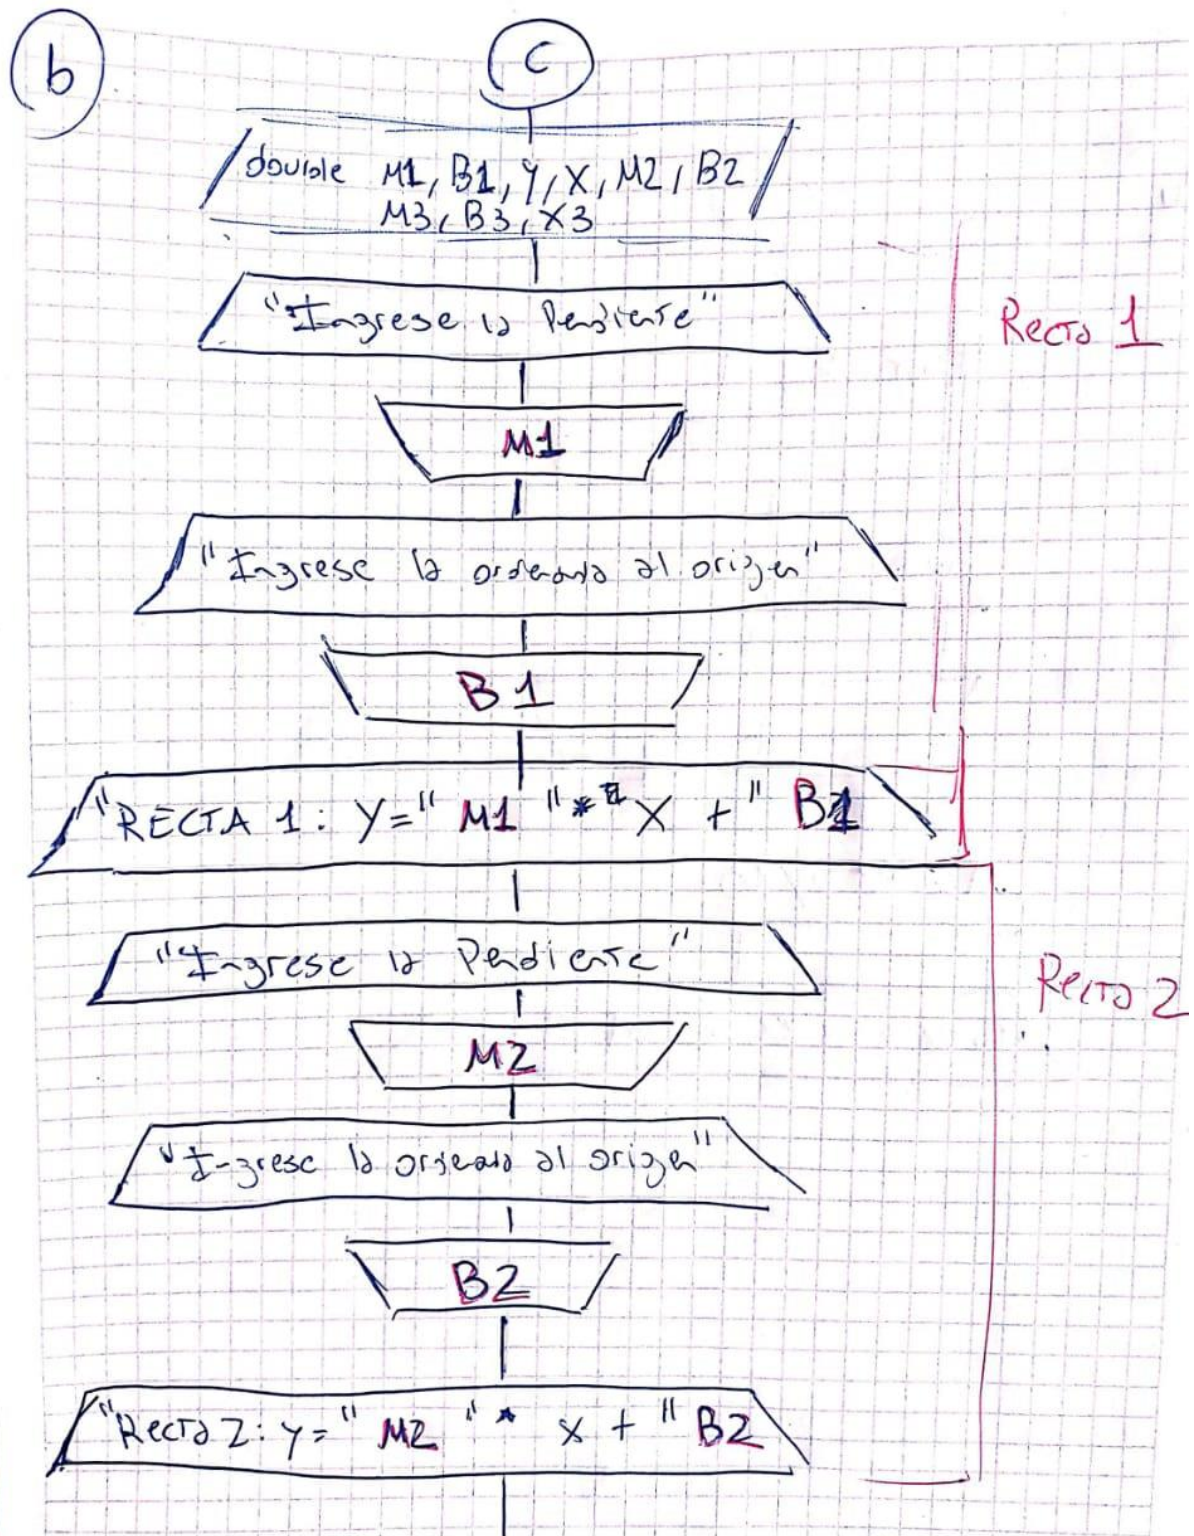 b
C
double M1, B1, Y, X, M2, B2
M3, B3, X3
"Ingrese la Pendiente"
Recta 1
M1
"Ingrese la ordenada al origen"
B1
"RECTA 1: Y=" M1 "* X + " B1
"Ingrese la Pendiente"
Recta 2
M2
"Ingrese la ordenada al origen"
B2
"Recta 2: y=" M2 "* x + " B2